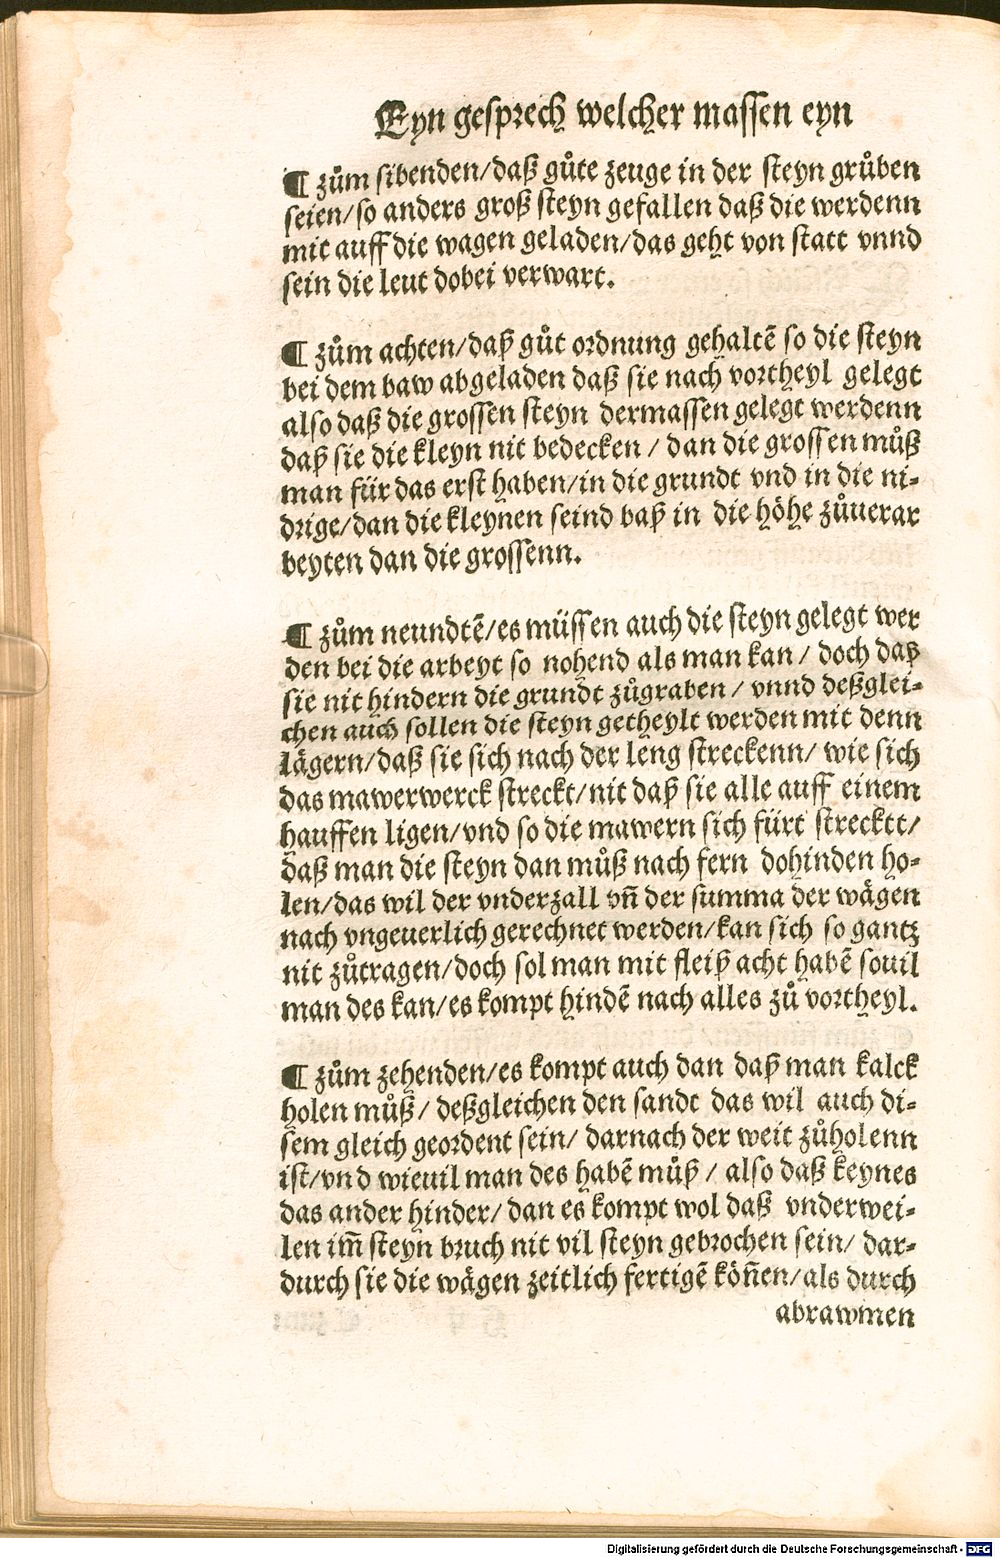 Eyn gesprech welcher massen eyn
¶ zům sibenden/daß gůte zeuge in der steyn grůben
seien/so anders groß steyn gefallen daß die werdenn
mit auff die wagen geladen/das geht von statt vnnd
sein die leut dobei verwart.
¶ zům achten/daß gůt ordnung gehaltẽ so die steyn
bei dem baw abgeladen daß sie nach vortheyl gelegt
also daß die grossen steyn dermassen gelegt werdenn
daß sie die kleyn nit bedecken / dan die grossen můß
man für das erst haben/in die grundt vnd in die ni-
drige/dan die kleynen seind baß in die höhe zůuerar
beyten dan die grossenn.
¶ zům neundtẽ/es müssen auch die steyn gelegt wer
den bei die arbeyt so nohend als man kan / doch daß
sie nit hindern die grundt zůgraben / vnnd deßglei-
chen auch sollen die steyn getheylt werden mit denn
lägern/daß sie sich nach der leng streckenn/ wie sich
das mawerwerck streckt/nit daß sie alle auff einem
hauffen ligen/vnd so die mawern sich fürt strecktt/
daß man die steyn dan můß nach fern dohinden ho-
len/das wil der vnderzall vñ der summa der wägen
nach vngeuerlich gerechnet werden/kan sich so gantz
nit zůtragen/doch sol man mit fleiß acht habẽ souil
man des kan/es kompt hindẽ nach alles zů vortheyl.
¶ zům zehenden/es kompt auch dan daß man kalck
holen můß/ deßgleichen den sandt das wil auch di-
sem gleich geordent sein/ darnach der weit zůholenn
ist/vnd wieuil man des habẽ můß / also daß keynes
das ander hinder/ dan es kompt wol daß vnderwei-
len im̃ steyn bruch nit vil steyn gebrochen sein/ dar-
durch sie die wägen zeitlich fertigẽ köñen/als durch
abrawmen
Digitalisierung gefördert durch die Deutsche Forschungsgemeinschaft - DFG